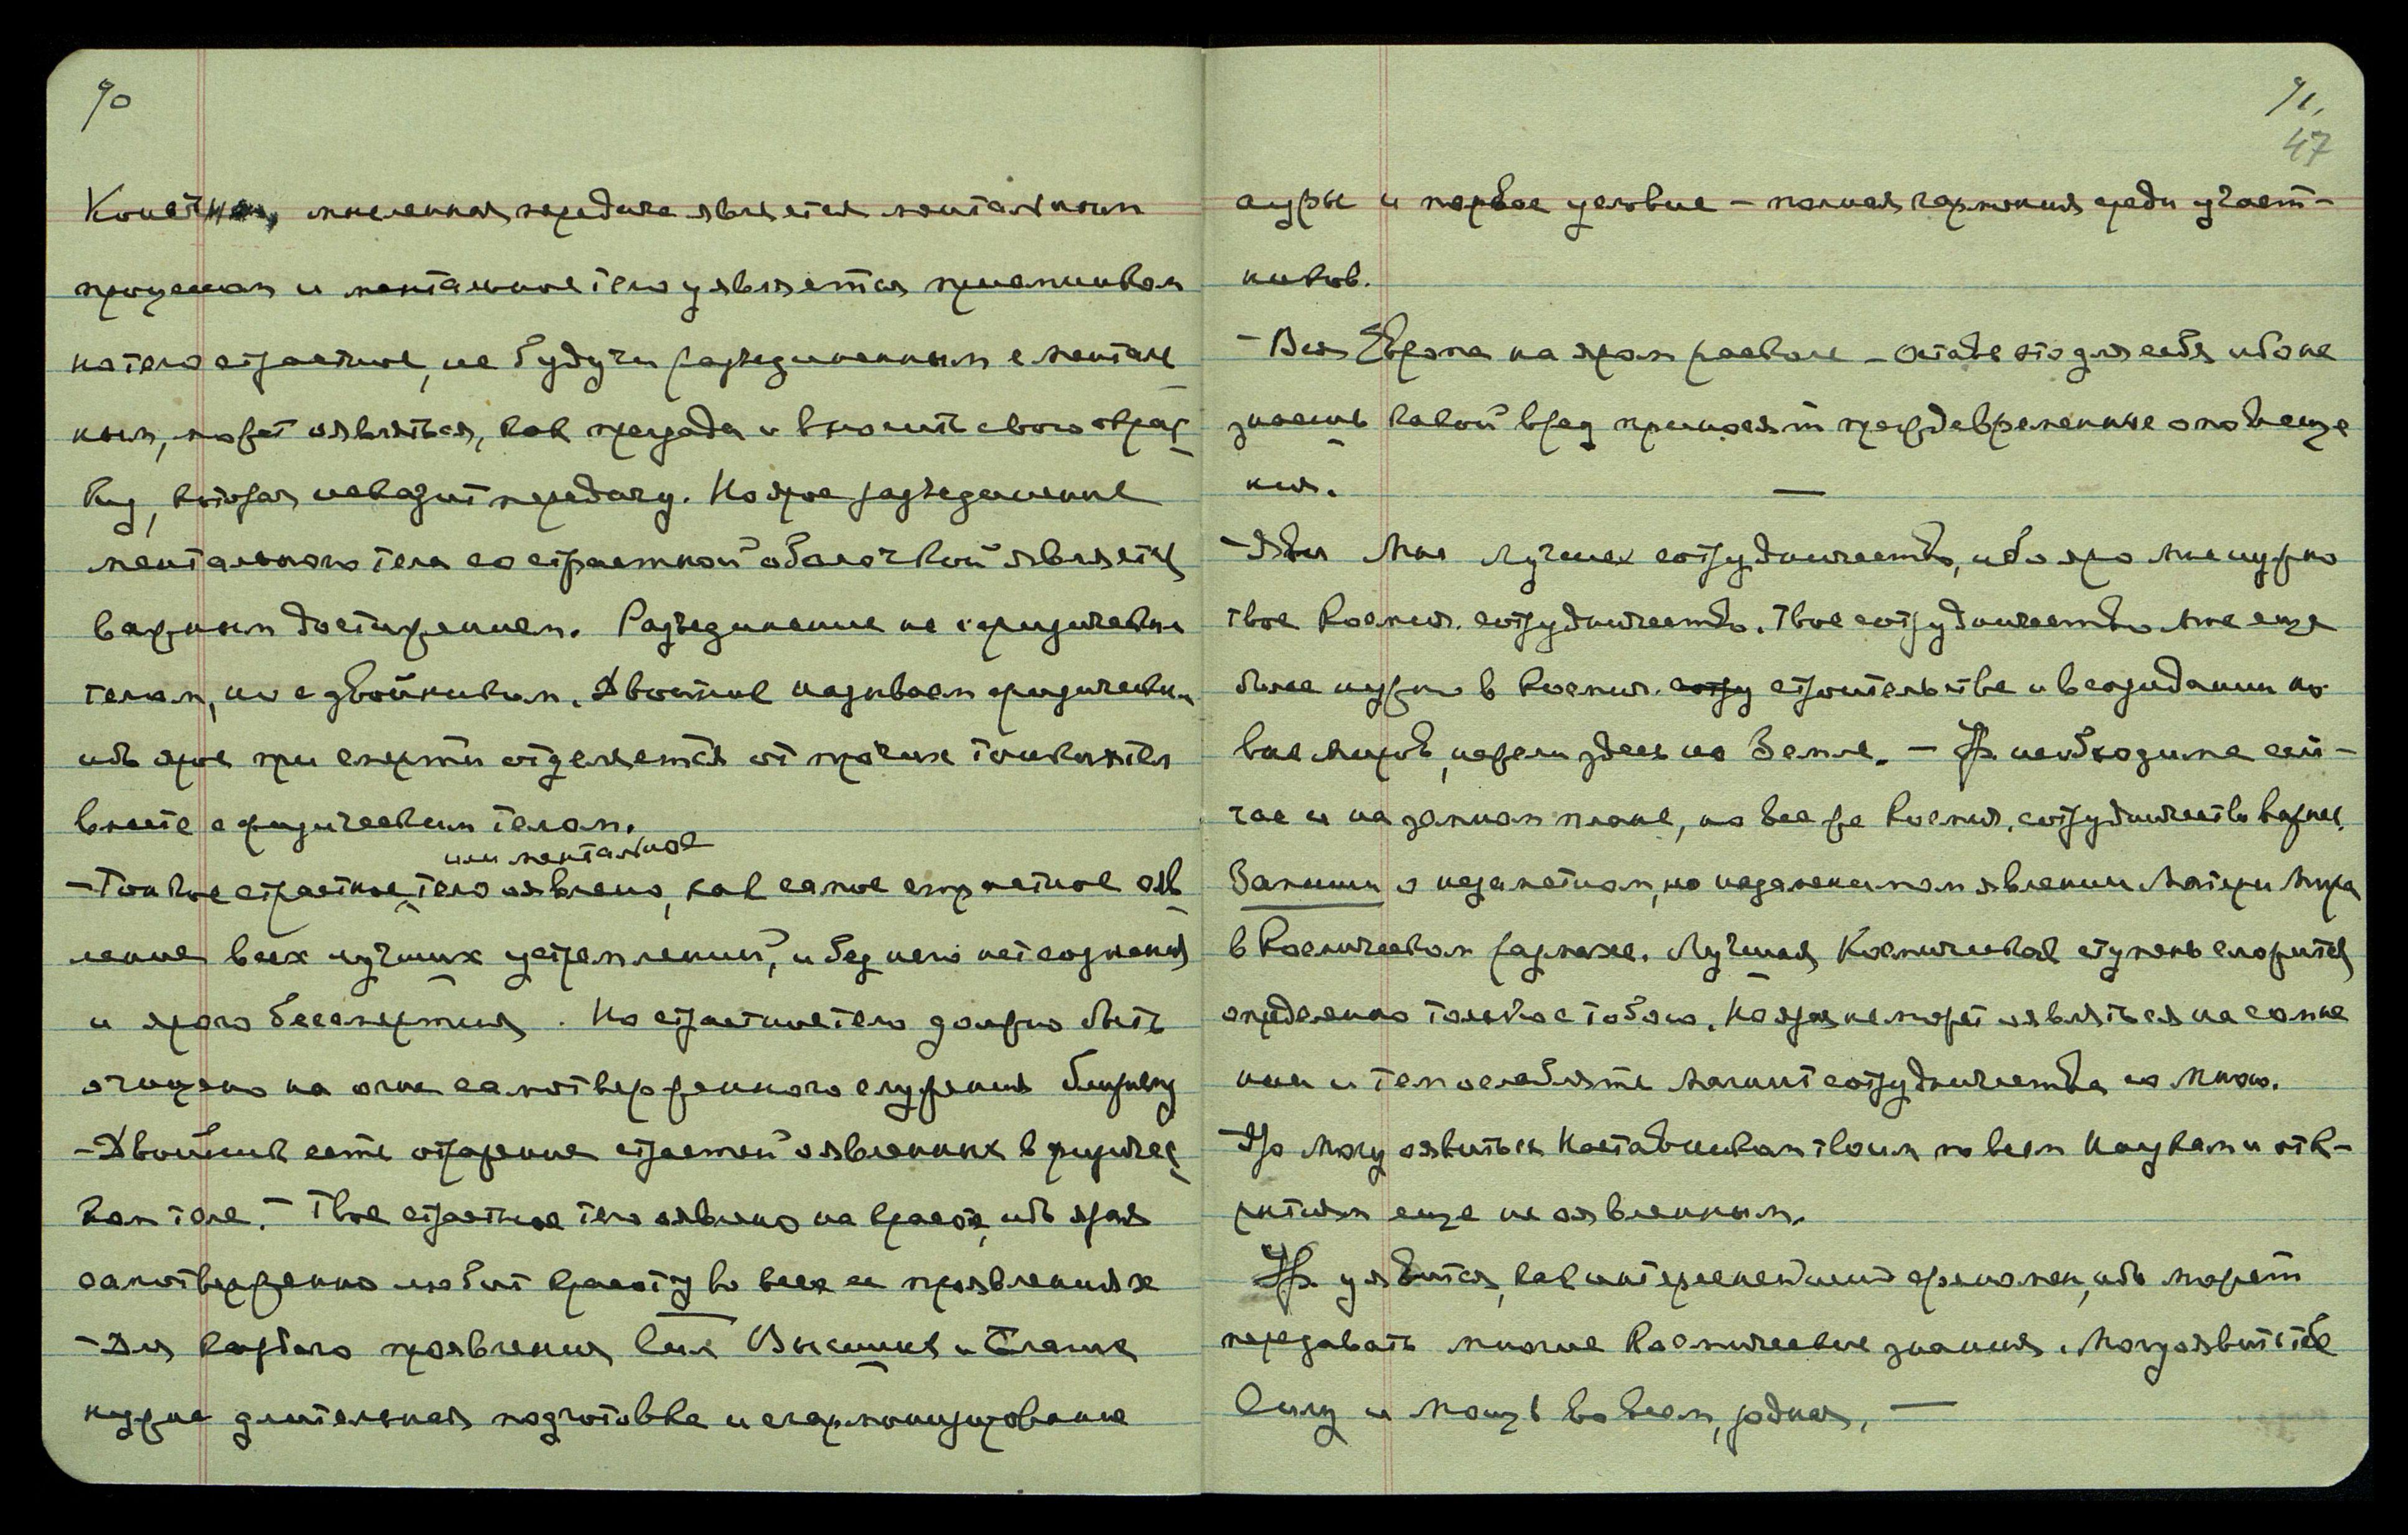 90
Конечно, мысленная передача является ментальным
процессом и ментальное тело уявляется приемником
но тело страстное, не будучи разъединенным с менталь
ным, может оявляться, как преграда и вносить свою окрас
ку, которая исказит передачу. Но ярое разъединение
ментального тела со страстной оболочкой является
важным достижением. Разъединение не с физическим
телом, но с двойником. Двойник называем физическим
ибо ярое при смерти отделяется от прочих тонких тел
вместе с физическим телом.
или ментальное
– Тонкое страстное тело оявлено, как самое энергетичное
ление всех лучших устремлений, и без него нет сознания
и ярого бессмертия. Но страстное тело должно быть
очищено на огне самоотверженного служения ближнему
– Двойник есть отражение страстей оявленных в физичес
ком теле. – Твое страстное тело оявлено на красоте, ибо ярая
самоотверженно любит красоту во всех ее проявлениях
– Для каждого проявления Сил Высших и Благих
нужна длительная подготовка и сгармонизирование
91.
47
ауры и первое условие – полная гармония среди участ-
ников.
– Вся Европа на яром расколе – оставь это для себя ибо не
знаешь какой вред приносят преждевременные оповеще
ния. —
– Яви Мне лучшее сотрудничество, ибо яро Мне нужно
твое Космич. сотрудничество. Твое сотрудничество Мне еще
более нужно в Космич. сотру строительстве и в созидании но
вых миров, нежели здесь на Земле. – Яро необходима сей-
час и на земном плане, но все же Космич. сотрудничество важнее.
Запиши о незаметном, но неделимом явлении Матери Мира
в Космическом размахе. Лучшая Космическая ступень сложится
определенно только с тобою. Но ярая не может оявляться на сомне
нии и тем ослаблять магнит сотрудничества со Мною.
Яро могу оявиться Наставником твоим по всем Наукам и отк-
рытиям еще не оявленным.
Яро уявится, как интереснейший феномен, ибо может
передавать многие Космические знания. Могу явить тебе
Силу и Мощь во всем, родная, —